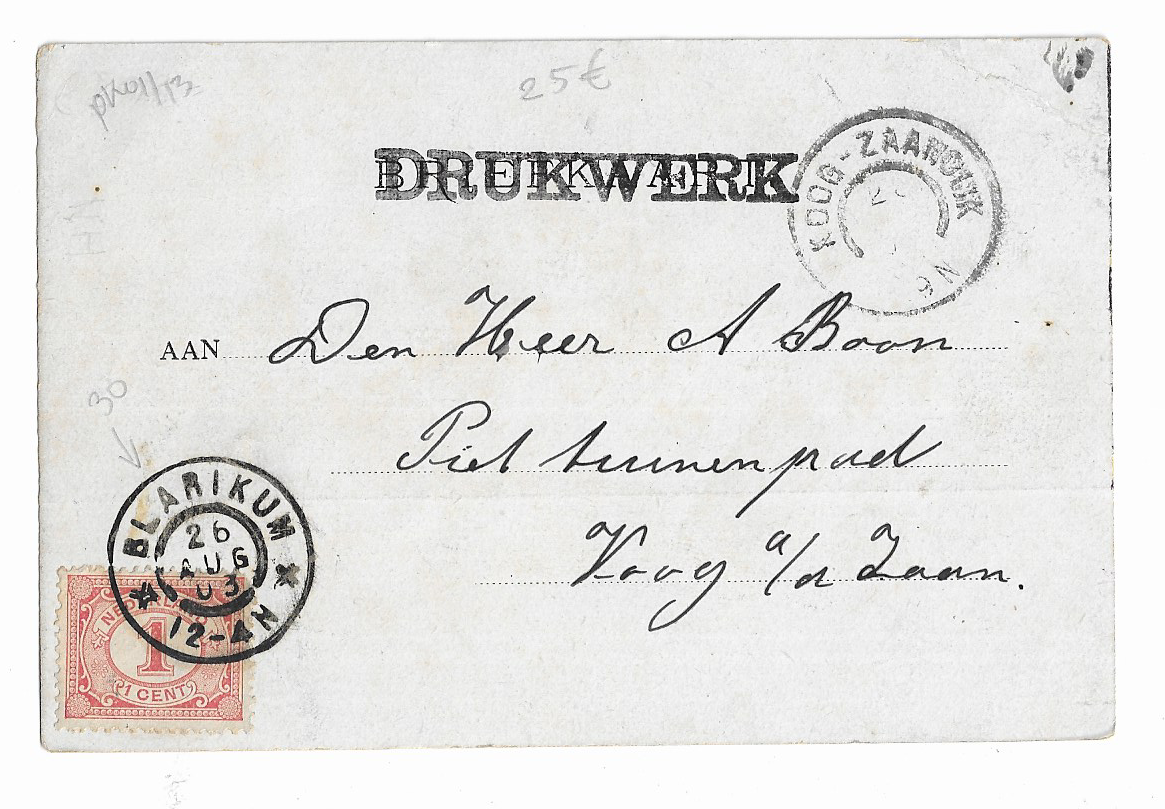 25€
BRIEFKAART
DRUKWERK
KOOG-ZAANDIJK
N 6
AAN Den Heer A Boon
Piet tuinenpad
Koog a/d Zaan.
30
BLARIKUM
26
AUG
03
12-4N
NEDERLAND
1
1 CENT